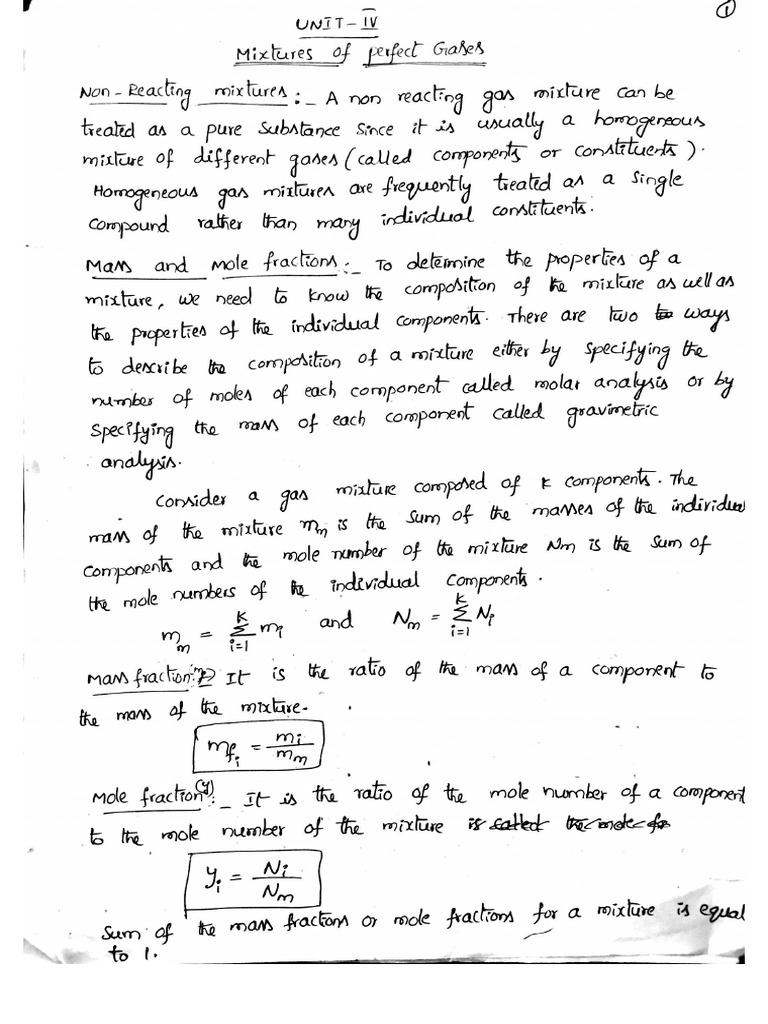 1
UNIT-IV
Mixtures of perfect Gases
Non-Reacting mixtures:- A non reacting gas mixture can be
treated as a pure substance since it is usually a homogeneous
mixture of different gases (called components or constituents).
Homogeneous gas mixtures are frequently treated as a single
compound rather than many individual constituents.
Mass and mole fractions:- To determine the properties of a
mixture, we need to know the composition of the mixture as well as
the properties of the individual components. There are two ways
to describe the composition of a mixture either by specifying the
number of moles of each component called molar analysis or by
specifying the mass of each component called gravimetric
analysis.
Consider a gas mixture composed of K components. The
mass of the mixture mm is the sum of the masses of the individual
components and the mole number of the mixture Nm is the sum of
the mole numbers of the individual components.
m_m = Σ_{i=1}^{K} m_i and N_m = Σ_{i=1}^{K} N_i
Mass fraction:- It is the ratio of the mass of a component to
the mass of the mixture.
mf_i = m_i / m_m
Mole fraction(y):- It is the ratio of the mole number of a component
to the mole number of the mixture is called the mole
y_i = N_i / N_m
Sum of the mass fractions or mole fractions for a mixture is equal
to 1.